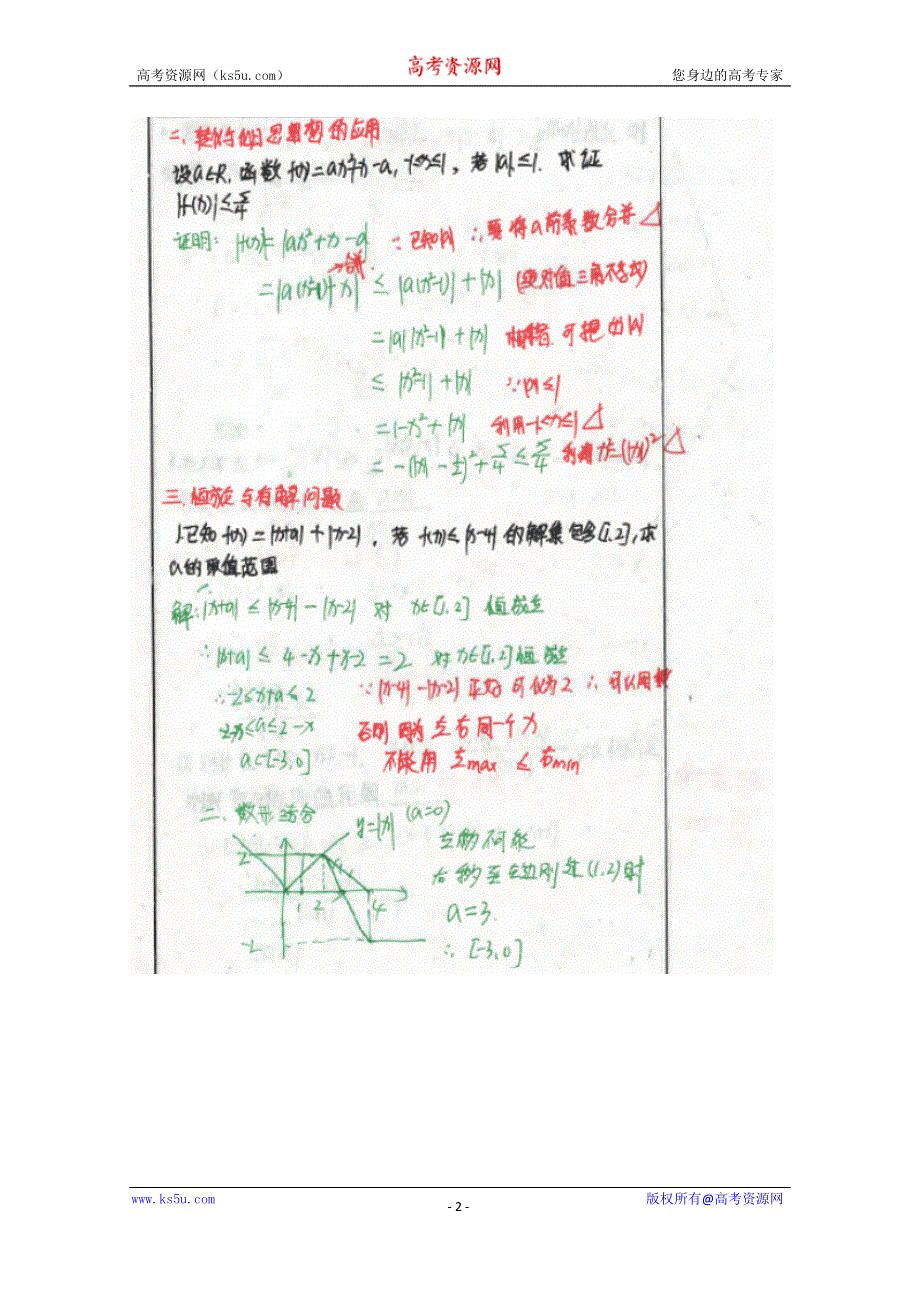 高考资源网
高考资源网(ks5u.com) 您身边的高考专家
二、转化与化归思想的应用
设a∈R,函数f(x)=ax²+x-a,-1≤x≤1,若|a|≤1.求证
|f(x)|≤5/4
证明:|f(x)|=|ax²+x-a| ∵已知|a| ∴要将a前系数合并△
→合并
=|a(x²-1)+x| ≤|a(x²-1)|+|x| (绝对值三角不等式)
=|a||x²-1|+|x| 可把出|a|
≤|x²-1|+|x| ∵|a|≤1
=1-x²+|x| 利用-1≤x≤1△
=-(|x|-1/2)²+5/4≤5/4 利用x²=(|x|)²△
三、恒成立与有解问题
1.已知f(x)=|x+a|+|x-2|,若f(x)≤|x-4|的解集包含[1,2],求
a的取值范围
解:|x+a|≤|x-4|-|x-2| 对x∈[1,2]恒成立
∴|x+a|≤4-x+x-2=2 对x∈[1,2]恒成立
∴-2≤x+a≤2 ∵|x-4|-|x-2|正好可化为2 ∴可以用
-2-x≤a≤2-x 否则因为左右同一个x
a∈[-3,0] 不能用左max≤右min
二、数形结合
y=|x| (a=0)
2
1 2 4
-2
左移不可能
右移至左边刚过(1,2)时
a=3.
∴[-3,0]
www.ks5u.com - 2 - 版权所有@高考资源网